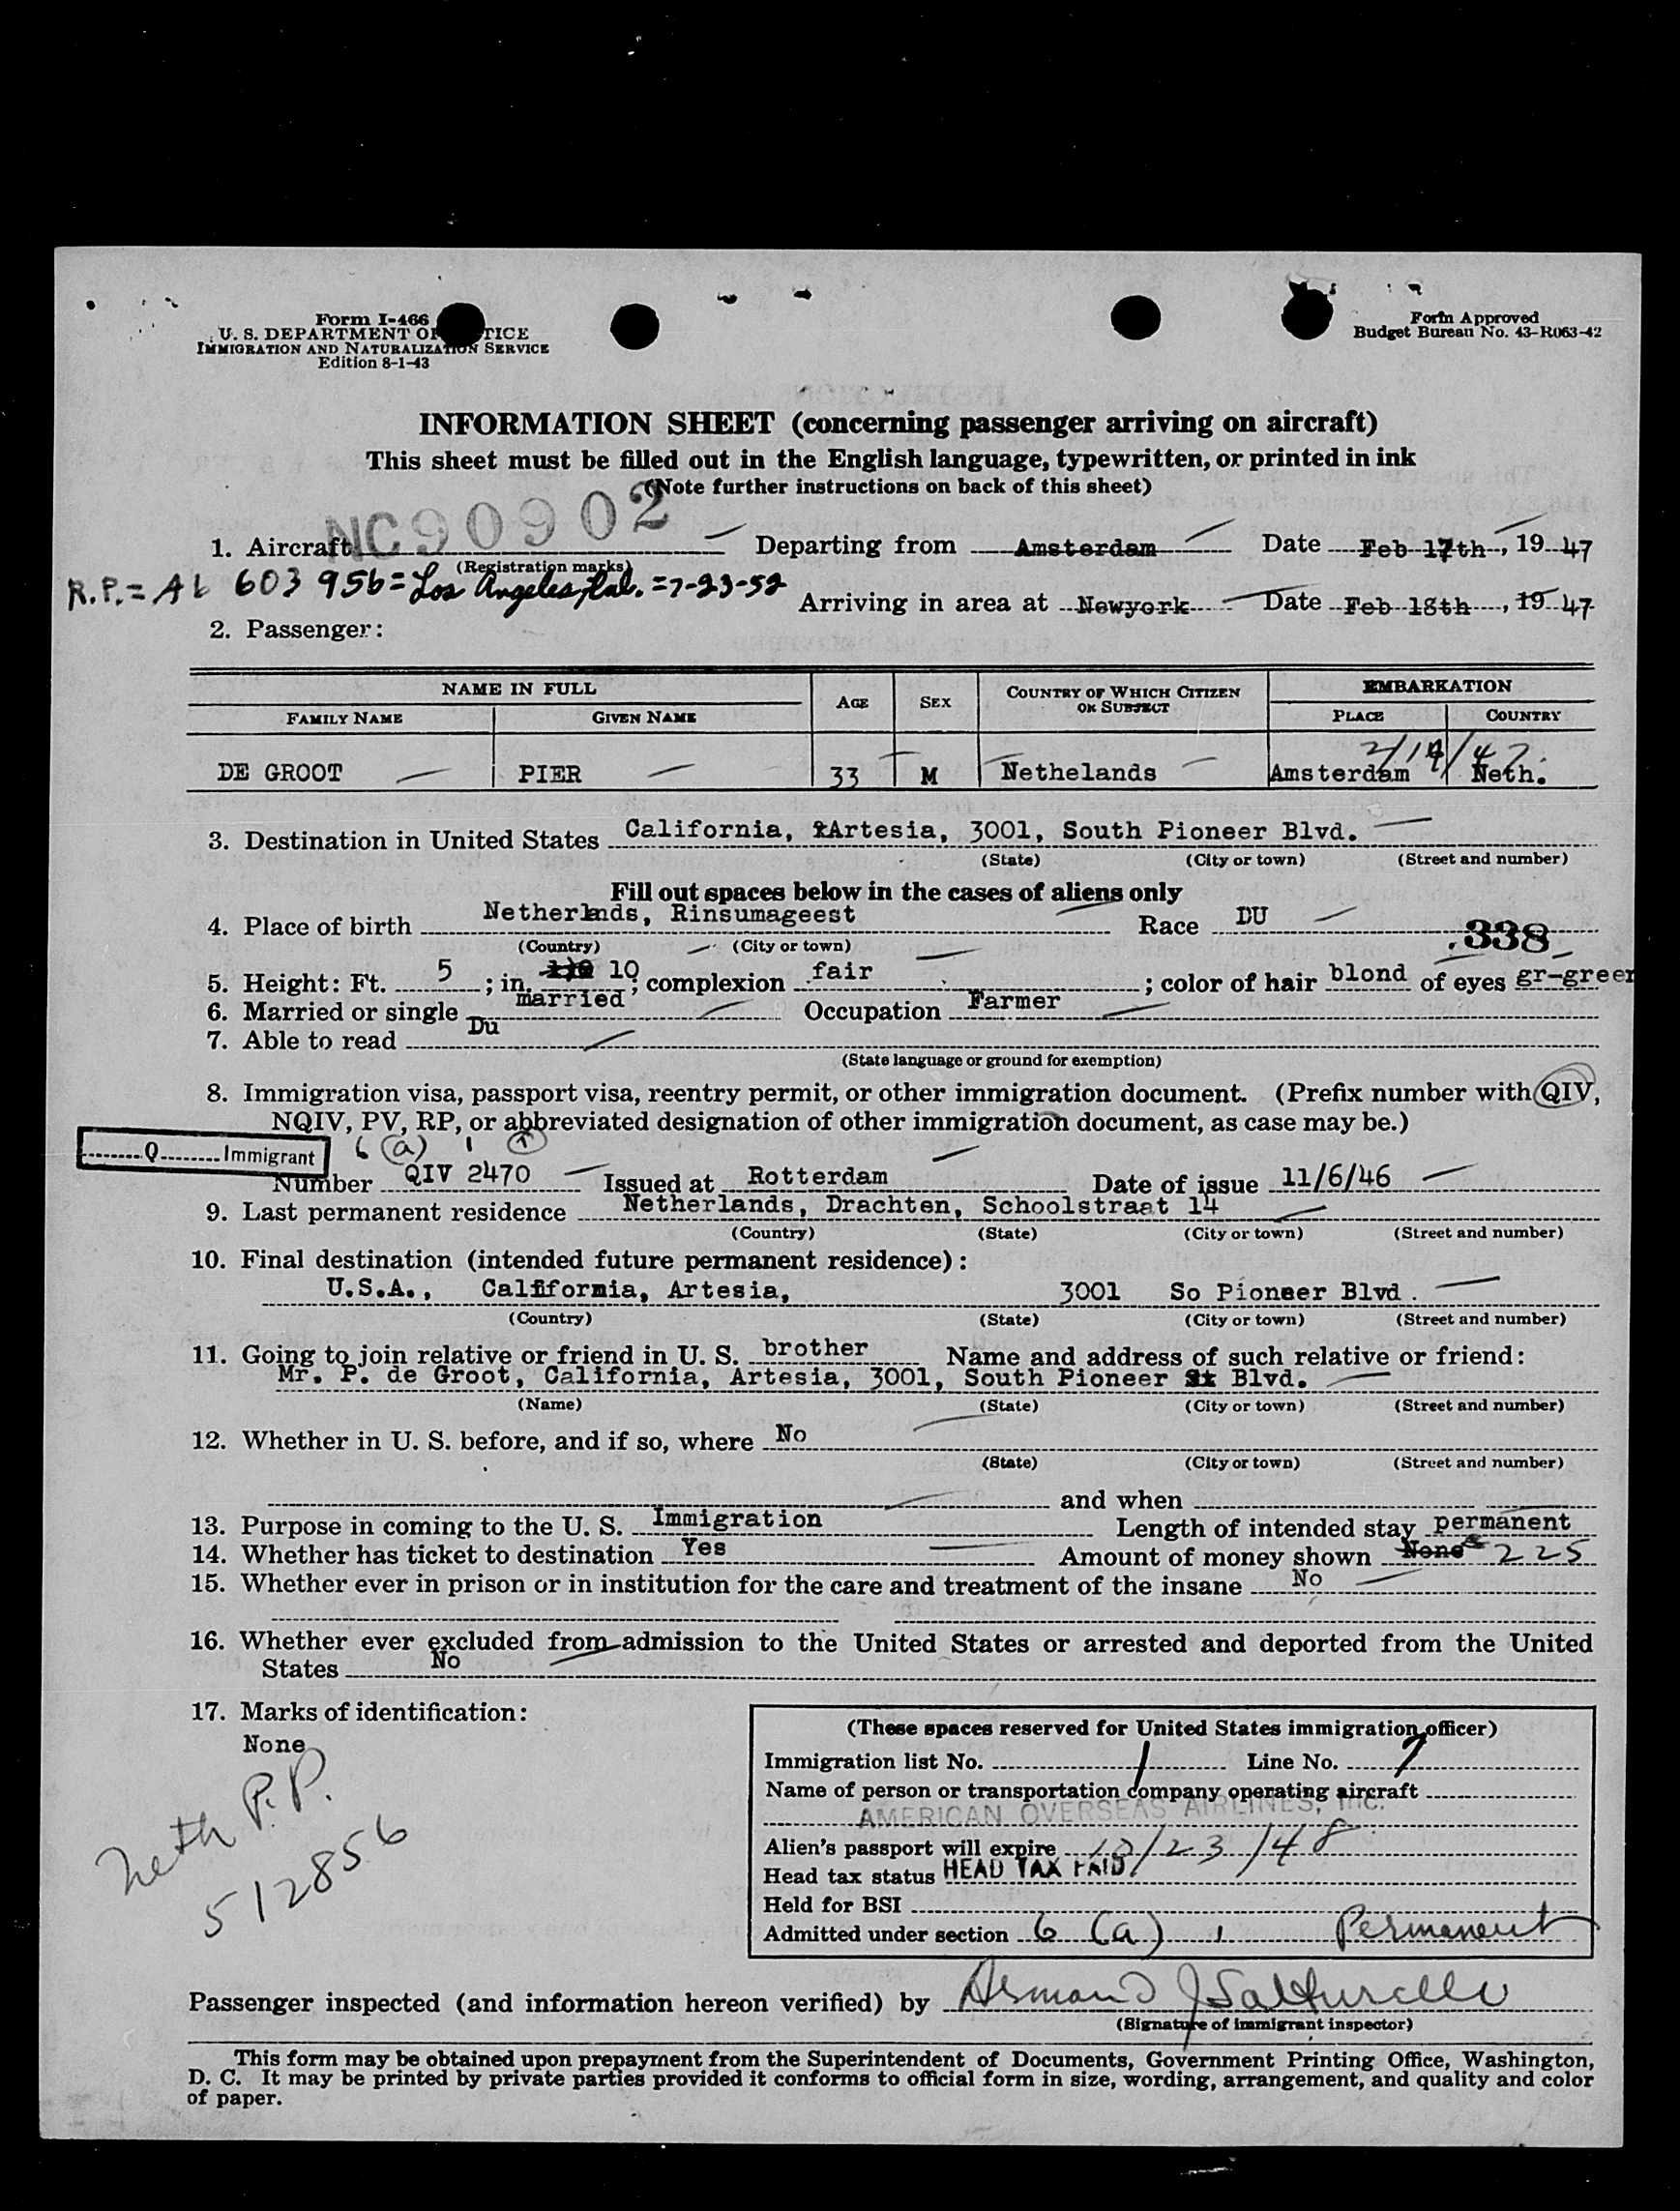 Form I-466
U. S. DEPARTMENT OF TICE
IMMIGRATION AND NATURALIZATION SERVICE
Edition 8-1-43
Form Approved
Budget Bureau No. 43-R063-42
INFORMATION SHEET (concerning passenger arriving on aircraft)
This sheet must be filled out in the English language, typewritten, or printed in ink
(Note further instructions on back of this sheet)
1. Aircraft NC90902 Departing from Amsterdam Date Feb 17th, 19 47
(Registration marks)
R.P. = A6 603 956 = Los Angeles, Cal. = 7-23-52
Arriving in area at Newyork Date Feb 18th, 19 47
2. Passenger:
NAME IN FULL AGE SEX COUNTRY OF WHICH CITIZEN OR SUBJECT EMBARKATION
FAMILY NAME GIVEN NAME PLACE COUNTRY
2/19/47
DE GROOT PIER 33 M Nethelands Amsterdam Neth.
3. Destination in United States California, Artesia, 3001, South Pioneer Blvd.
(State) (City or town) (Street and number)
Fill out spaces below in the cases of aliens only
4. Place of birth Netherlnds, Rinsumageest Race DU
(Country) (City or town)
338
5. Height: Ft. 5 ; in. 10 ; complexion fair ; color of hair blond of eyes gr-green
6. Married or single married Occupation Farmer
7. Able to read Du
(State language or ground for exemption)
8. Immigration visa, passport visa, reentry permit, or other immigration document. (Prefix number with QIV,
NQIV, PV, RP, or abbreviated designation of other immigration document, as case may be.)
Q Immigrant 6 (a) 1
Number QIV 2470 Issued at Rotterdam Date of issue 11/6/46
9. Last permanent residence Netherlands, Drachten, Schoolstraat 14
(Country) (State) (City or town) (Street and number)
10. Final destination (intended future permanent residence):
U.S.A., California, Artesia, 3001 So Pioneer Blvd.
(Country) (State) (City or town) (Street and number)
11. Going to join relative or friend in U. S. brother Name and address of such relative or friend:
Mr. P. de Groot, California, Artesia, 3001, South Pioneer St Blvd.
(Name) (State) (City or town) (Street and number)
12. Whether in U. S. before, and if so, where No
(State) (City or town) (Street and number)
and when
13. Purpose in coming to the U. S. Immigration Length of intended stay permanent
14. Whether has ticket to destination Yes Amount of money shown None $ 225
15. Whether ever in prison or in institution for the care and treatment of the insane No
16. Whether ever excluded from admission to the United States or arrested and deported from the United
States No
17. Marks of identification:
None
Neth P.P.
512856
(These spaces reserved for United States immigration officer)
Immigration list No. 1 Line No. 7
Name of person or transportation company operating aircraft
AMERICAN OVERSEAS AIRLINES, INC.
Alien's passport will expire 10/23/48
Head tax status HEAD TAX PAID
Held for BSI
Admitted under section 6 (a) 1 Permanent
Passenger inspected (and information hereon verified) by
(Signature of immigrant inspector)
This form may be obtained upon prepayment from the Superintendent of Documents, Government Printing Office, Washington,
D. C. It may be printed by private parties provided it conforms to official form in size, wording, arrangement, and quality and color
of paper.